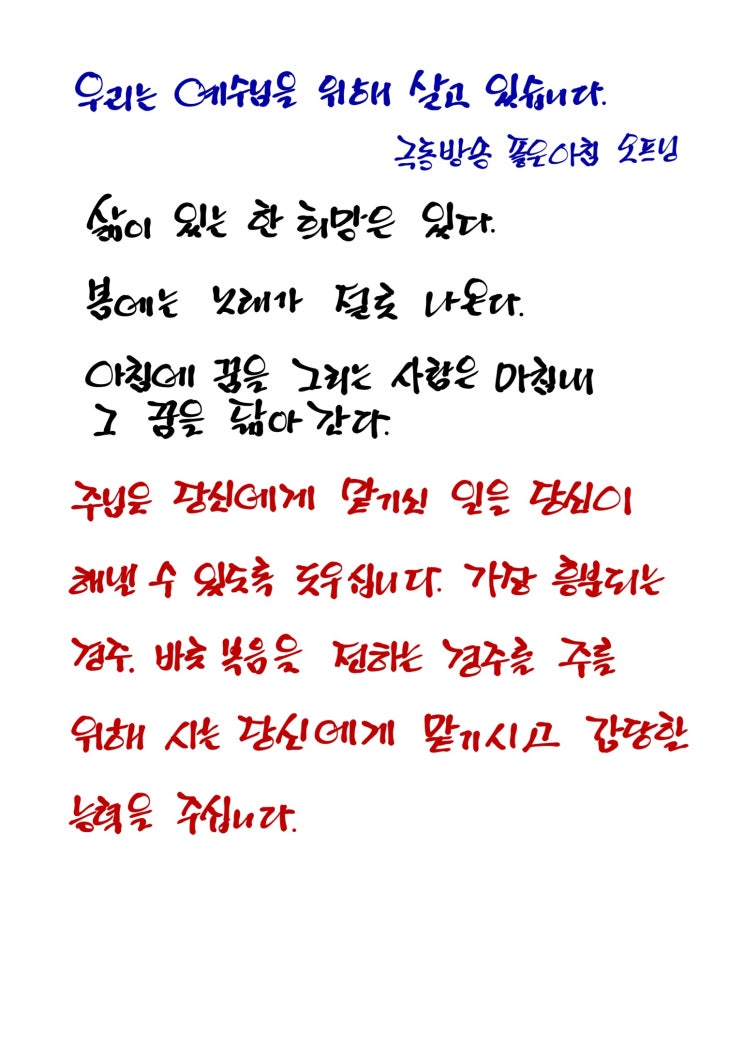 우리는 예수님을 위해 살고 있습니다.
극동방송 좋은아침 오프닝
삶이 있는 한 희망은 있다.
봄에는 노래가 절로 나온다.
아침에 꿈을 그리는 사람은 마침내
그 꿈을 닮아 간다.
주님은 당신에게 맡기신 일을 당신이
해낼 수 있도록 도우십니다. 가장 흥분되는
경주. 바로 복음을 전하는 경주를 주를
위해 사는 당신에게 맡기시고 감당할
능력을 주십니다.